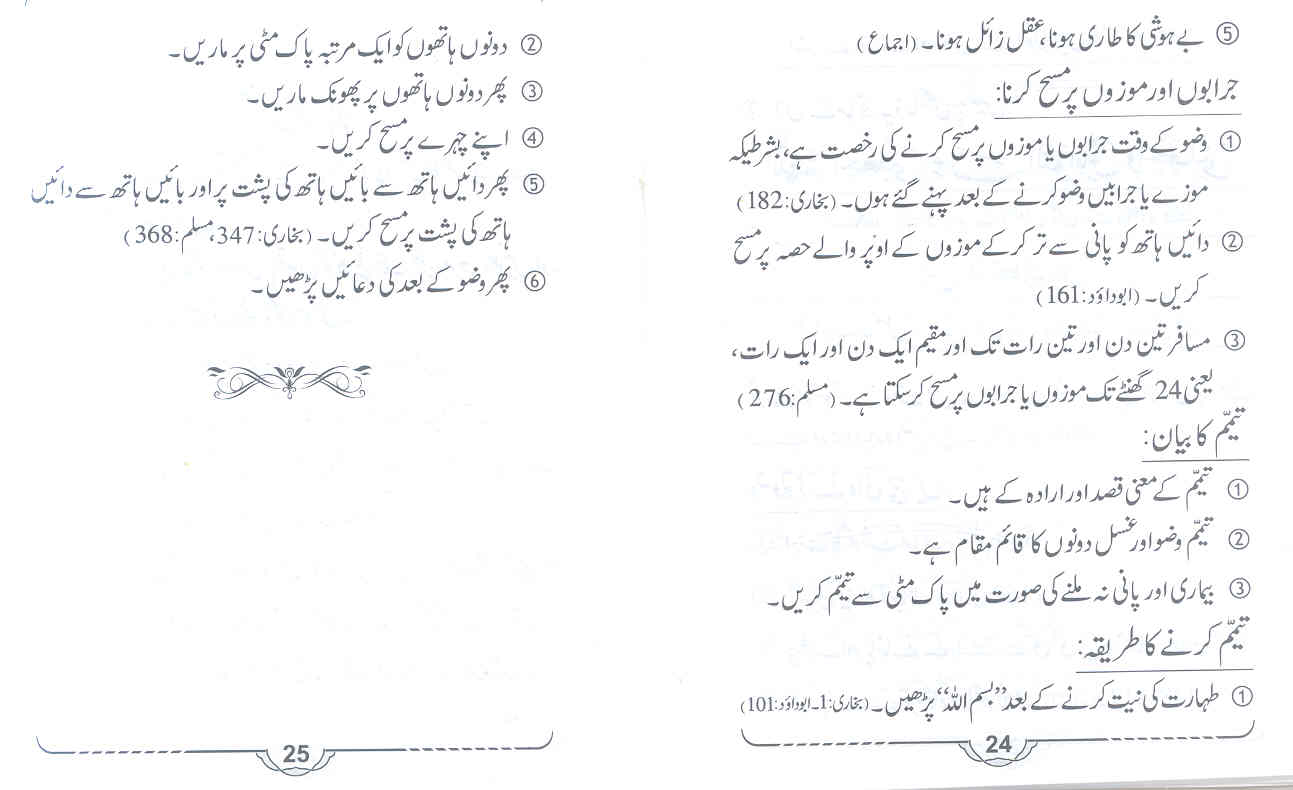 ⑤ بے ہوشی کا طاری ہونا، عقل زائل ہونا۔ (اجماع)
جرابوں اور موزوں پر مسح کرنا:
① وضو کے وقت جرابوں یا موزوں پر مسح کرنے کی رخصت ہے، بشرطیکہ
موزے یا جرابیں وضو کرنے کے بعد پہنے گئے ہوں۔ (بخاری:182)
② دائیں ہاتھ کو پانی سے تر کرکے موزوں کے اوپر والے حصہ پر مسح
کریں۔ (ابوداؤد:161)
③ مسافر تین دن اور تین رات تک اور مقیم ایک دن اور ایک رات،
یعنی 24 گھنٹے تک موزوں یا جرابوں پر مسح کر سکتا ہے۔ (مسلم:276)
تیمّم کا بیان:
① تیمّم کے معنی قصد اور ارادہ کے ہیں۔
② تیمّم وضو اور غسل دونوں کا قائم مقام ہے۔
③ بیماری اور پانی نہ ملنے کی صورت میں پاک مٹی سے تیمّم کریں۔
تیمّم کرنے کا طریقہ:
① طہارت کی نیت کرنے کے بعد ”بسم اللہ“ پڑھیں۔ (بخاری:1۔ابوداؤد:101)
24
② دونوں ہاتھوں کو ایک مرتبہ پاک مٹی پر ماریں۔
③ پھر دونوں ہاتھوں پر پھونک ماریں۔
④ اپنے چہرے پر مسح کریں۔
⑤ پھر دائیں ہاتھ سے بائیں ہاتھ کی پشت پر اور بائیں ہاتھ سے دائیں
ہاتھ کی پشت پر مسح کریں۔ (بخاری:347، مسلم:368)
⑥ پھر وضو کے بعد کی دعائیں پڑھیں۔
25